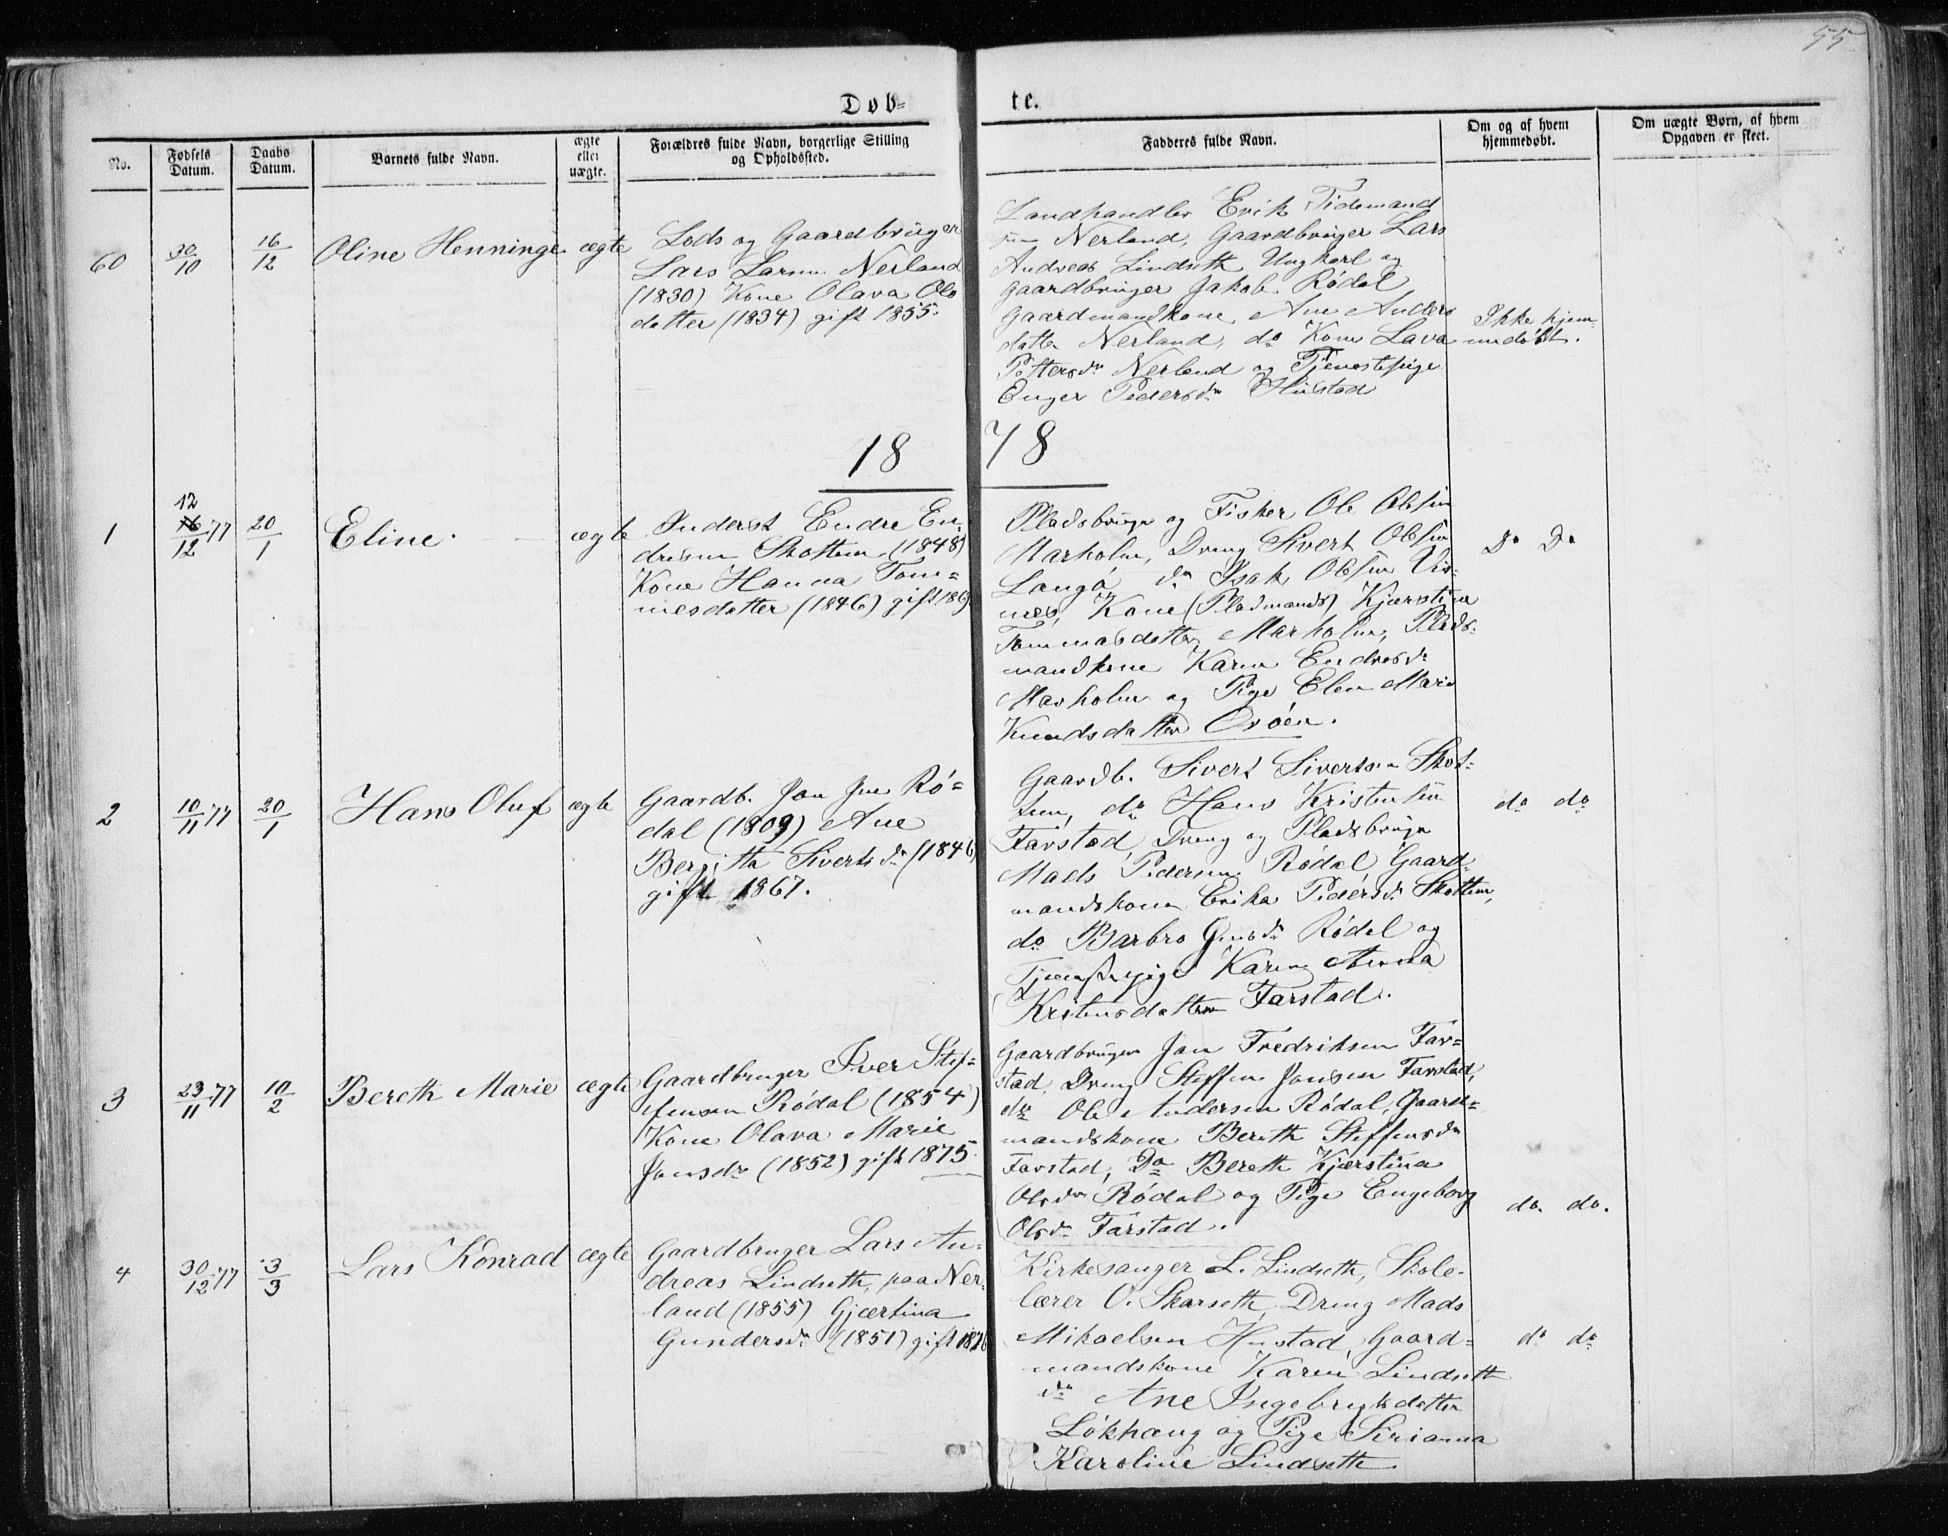 55
Døb- te.
No.
Fødsels Datum.
Daabs Datum.
Barnets fulde Navn.
ægte eller uægte.
Forældres fulde Navn, borgerlige Stilling
og Opholdssted.
Fadderes fulde Navn.
Om og af hvem
hjemmedøbt.
Om uægte Børn, af hvem
Opgaven er skeet.
60
30/10
16/12
Oline Henninge
ægte
Lods og Gaardbruger
Lars Larsen Nerland
(1830) Kone Olava Ols
datter (1834) gift 1855.
Landhandler Erik Tidemand
Nerland, Gaardbruger Lars
Andreas Lindseth Ungkarl og
Gaardbruger Jakob Rødal
Gaardmandkone Ane Anders
datter Nerland, do Kone Lava
Pettersdr Nerland og Tjenestepige
Enger Pedersdr Hustad
Ikke hjem-
medøbt.
18 78
1
12
16/12 77
20/1
Eline.
ægte
Inderst Endre En-
dresen Skotten (1848)
Kone Hanna Tom-
mesdatter (1846) gift 186
Pladsbruger og Fisker Ole Olsen
Marholm, Dreng Sivert Olsen
Langø do Isak Olsen Vis-
nes, Kone (Pladsmands) Kjerstine
Tommasdatter Marholm, Plads-
mandkone Karen Endresdr
Marholm og Pige Elen Marie
Knudsdatter Orøen.
Do Do
2
10/11 77
20/1
Hans Oluf
ægte
Gaardb. Jon Jensen Rø-
dal (1809) Ane
Bergitta Sivertsdr (1846)
gift 1867.
Gaardb. Sivert Sivertsen Skot-
ten, do Hans Kristensen
Farstad, Dreng og Pladsbruger
Mads Pedersen Rødal Gaard-
mandskone Erika Pedersdr Skotten,
do Barbro Jensdr Rødal og
Tjenestepige Karen Anna
Kristensdatter Farstad.
do do
3
23/11 77
10/2
Bereth Marie
ægte
Gaardbruger Iver Stef-
fensen Rødal (1854)
Kone Olava Marie
Jonsdr (1852) gift 1875.
Gaardbruger Jon Fredriksen Far-
stad, Dreng Steffen Jonsen Farstad,
do Ole Andersen Rødal, Gaard-
mandskone Bereth Steffensdr
Farstad, Do Bereth Kjærstina
Olsdr Rødal og Pige Engeborg
Olsdr Farstad.
do. do.
4
30/12 77
3/3
Lars Konrad
ægte
Gaardbruger Lars An-
dreas Lindseth, paa Ner-
land (1855) Gjertina
Gundersdr (1851) gift 1876
Kirkesanger L. Lindseth, Skole-
lærer O. Skarseth, Dreng Mads
Mikaelsen Hustad, Gaard-
mandskone Karen Lindseth
do Ane Ingebrigtsdatter
Løkhaug og Pige Sirianna
Karoline Lindseth.
do do